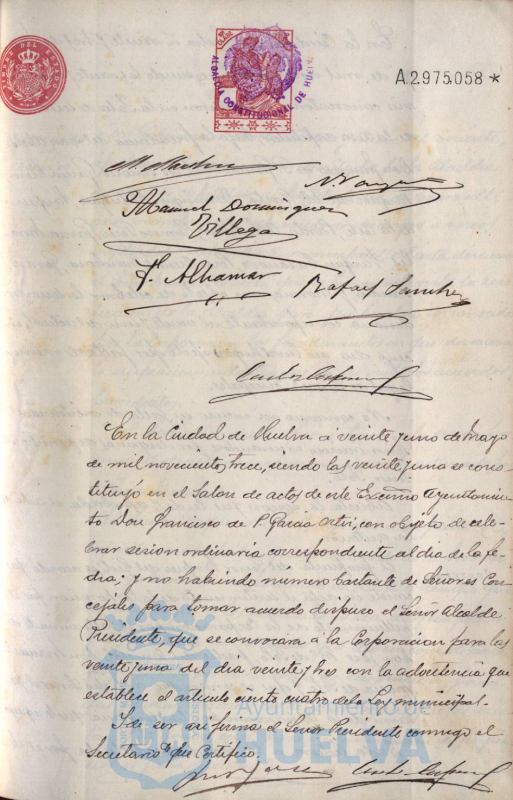 ALCALDIA CONSTITUCIONAL DE HUELVA
A.2975,058 *
Manuel Dominguez
Villega
F. Alhamar
Rafael Sanchez
En la Ciudad de Huelva á veinte y uno de Mayo
de mil noveciento, trece, siendo las veinte y una se cons-
tituyó en el Salon de actos de este Excmo Ayuntamien-
to Don Francisco de P. Garcia Ortiz, con objeto de cele-
brar sesion ordinaria correspondiente al dia de la fe-
cha; y no habiendo número bastante de Señores Con-
cejales para tomar acuerdo dispuso el Señor Alcalde
Presidente, que se convocara á la Corporacion para las
veinte y una del dia veinte y tres con la advertencia que
establece el articulo ciento cuatro de la Ley municipal.-
Y de ser asi firma el Señor Presidente conmigo el
Secretario de que Certifico.
Ayuntamiento de
HUELVA